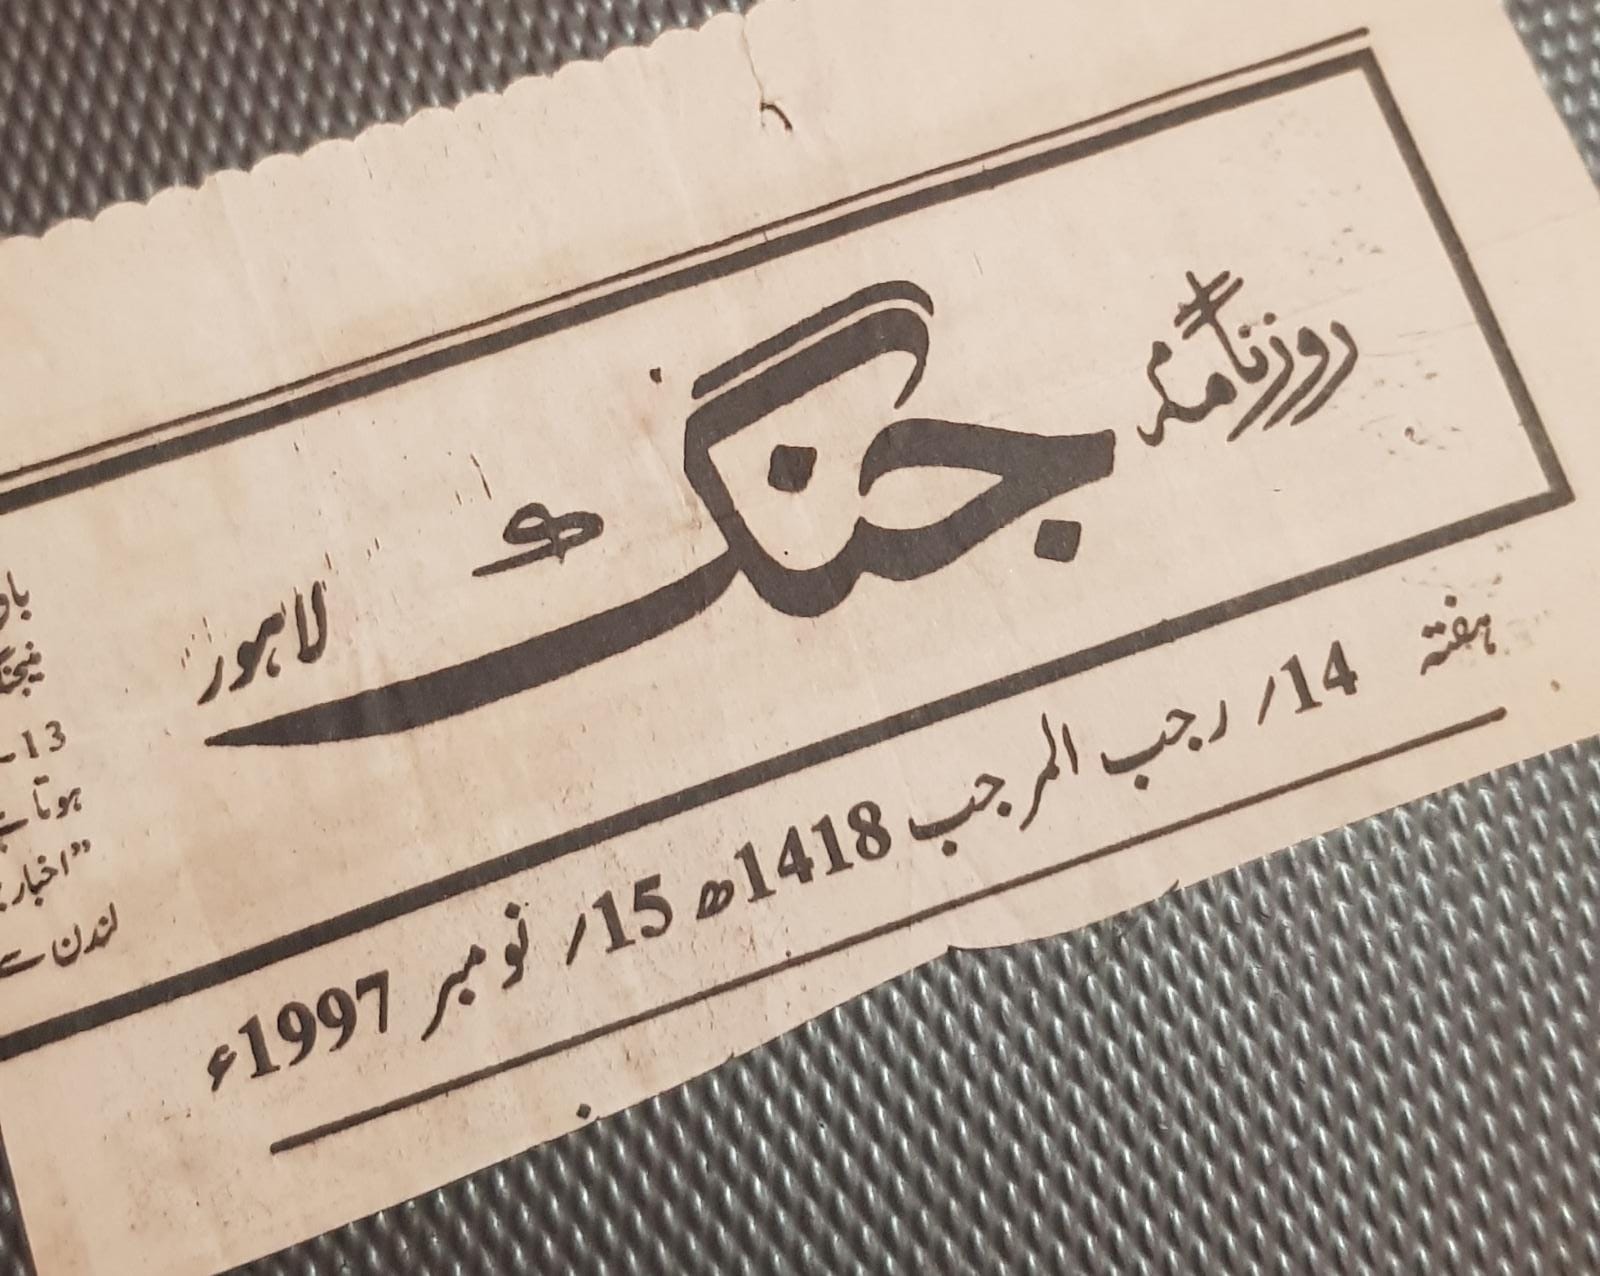 روزنامہ جنگ لاہور
ہفتہ 14؍ رجب المرجب 1418ھ 15؍ نومبر 1997ء
13-
ہوتا ہے
"اخبار
لندن سے